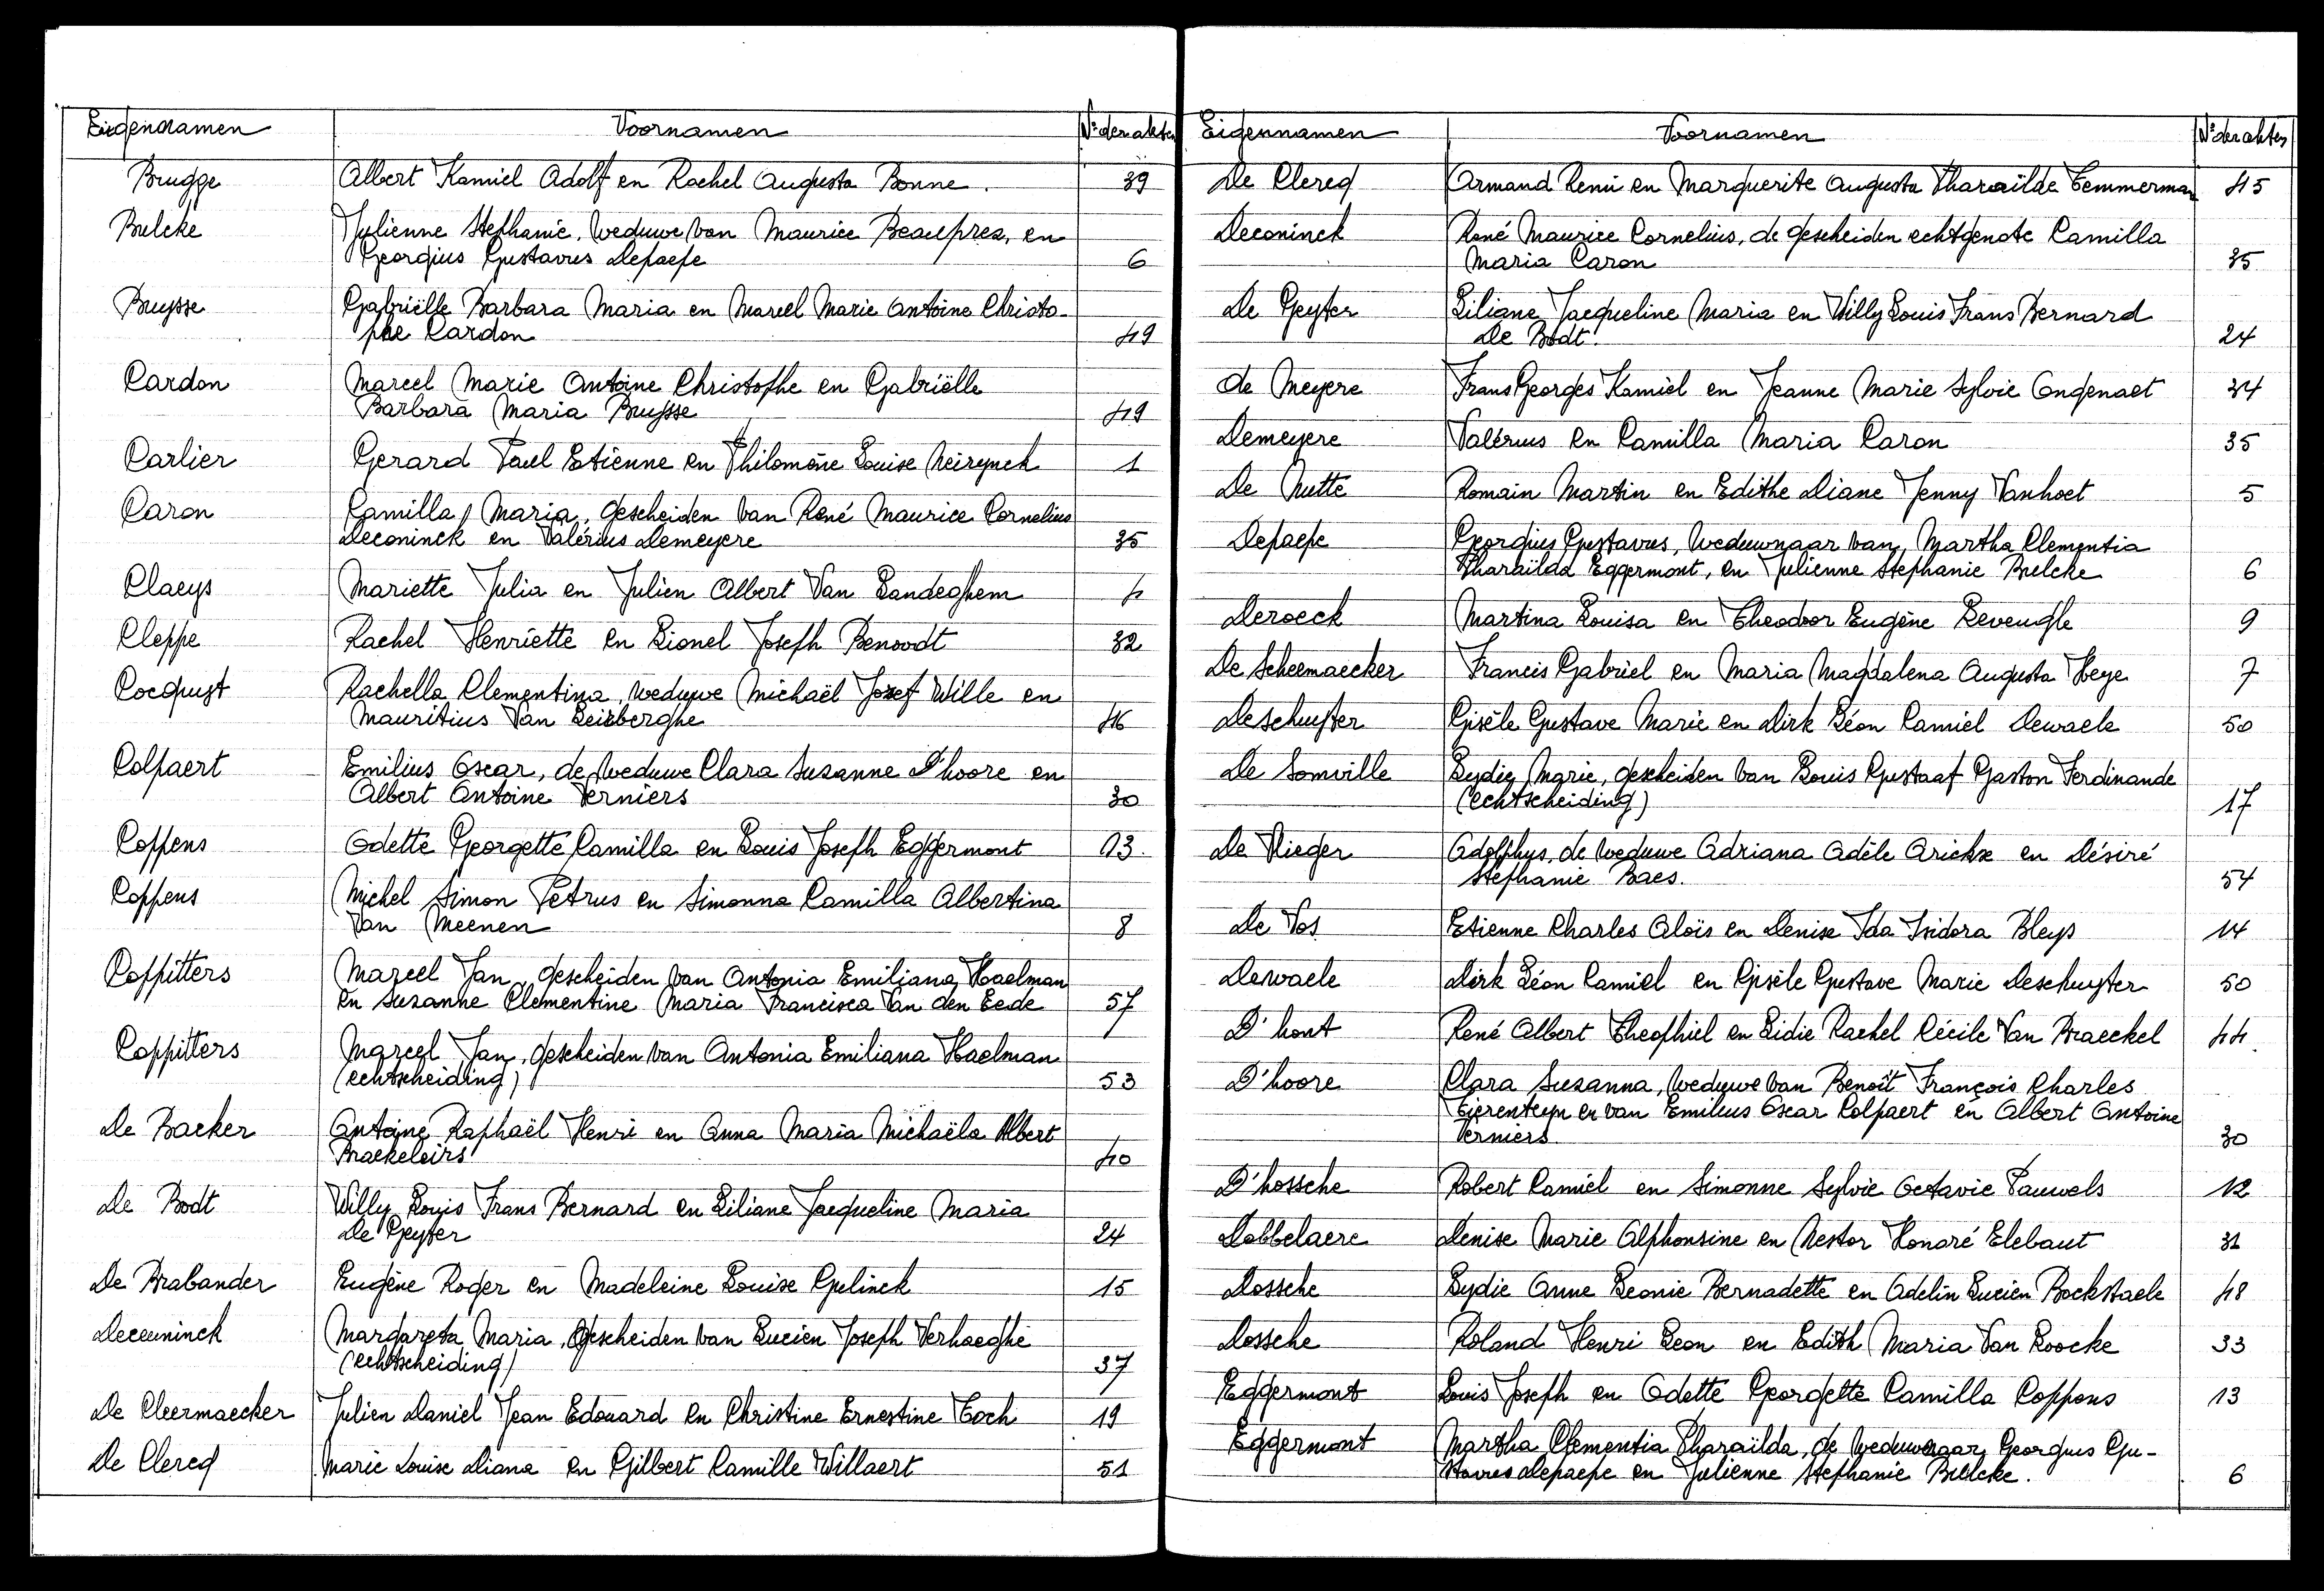 Eigennamen Voornamen N° der akten
Brugge Albert Kamiel Adolf en Rachel Augusta Bonne. 39
Bulcke Julienne Stephanie, weduwe van Maurice Beauprez, en
Georgius Gustavus Depaepe 6
Buysse Gabriëlle Barbara Maria en Marcel Marie Antoine Christo-
phe Cardon 49
Cardon Marcel Marie Antoine Christophe en Gabriëlle
Barbara Maria Buysse 49
Carlier Gerard Paul Etienne en Philomène Louise Neirynck 1
Caron Camilla Maria, gescheiden van René Maurice Cornelius
Deconinck en Valérius Demeyere 35
Claeys Mariette Julia en Julien Albert Van Landeghem 4
Cleppe Rachel Henriette en Lionel Joseph Benoodt 32
Cocquyt Rachella Clementina, weduwe Michaël Jozef Wille en
Mauritius Van Leirberghe 46
Colpaert Emilius Oscar, de weduwe Clara Suzanne D'hoore en
Albert Antoine Verniers 30
Coppens Odette Georgette Camilla en Louis Joseph Eggermont 13.
Coppens Michel Simon Petrus en Simonna Camilla Albertina
Van Meenen 8
Coppitters Marcel Jan, gescheiden van Antonia Emiliana Haelman
en Suzanne Clementine Maria Francisca Van den Eede 57
Coppitters Marcel Jan, gescheiden van Antonia Emiliana Haelman
(echtscheiding) 53
De Backer Antoine Raphaël Henri en Anna Maria Michaëla Albert
Braekeleirs 40
De Bodt Willy Louis Frans Bernard en Liliane Jacqueline Maria
De Geyter 24
De Brabander Eugène Roger en Madeleine Louise Gelinck 15
Deceuninck Margareta Maria, gescheiden van Lucien Joseph Verhaeghe
(echtscheiding) 37
De Cleermaecker Julien Daniel Jean Edouard en Christine Ernestine Toch 19
De Clercq Marie Louise Diana en Gilbert Camille Willaert 51
Eigennamen Voornamen N° der akten
De Clercq Armand Remi en Marguerite Augusta Tharaïlde Temmerman 45
Deconinck René Maurice Cornelius, de gescheiden echtgenote Camilla
Maria Caron 35
De Geyter Liliane Jacqueline Maria en Willy Louis Frans Bernard
De Bodt. 24
de Meyere Frans Georges Kamiel en Jeanne Marie Sylvie Ongenaet 34
Demeyere Valérius en Camilla Maria Caron 35
De Nutte Romain Martin en Edithe Diane Jenny Vanhoet 5
Depaepe Georgius Gustavus, weduwnaar van, Martha Clementia
Tharaïlda Eggermont, en Julienne Stephanie Bulcke 6
Deroeck Martina Louisa en Theodoor Eugène Revengle 9
De Scheemaecker Francis Gabriel en Maria Magdalena Augusta Heye 7
Deschuyter Gisèle Gustave Marie en Dirk Léon Camiel Dewaele 50
De Somville Lydie Marie, gescheiden van Louis Gustaaf Gaston Ferdinande
(echtscheiding) 17
De Vlieger Adolphus, de weduwe Adriana Adèle Arickx en Désiré
Stephanie Baes. 54
De Vos Etienne Charles Aloïs en Denise Ida Isidora Bleys 14
Dewaele Dirk Léon Camiel en Gisèle Gustave Marie Deschuyter 50
D'hont René Albert Theophiel en Lidie Rachel Cécile Van Braeckel 44.
D'hoore Clara Suzanna, weduwe van Benoît François Charles
Eierenteyn en van Emilius Oscar Colpaert en Albert Antoine
Verniers 30
D'hossche Robert Camiel en Simonne Sylvie Octavie Pauwels 12
Dobbelaere Denise Marie Alphonsine en Nestor Honoré Elebaut 31
Dossche Lydie Anne Leonie Bernadette en Odelin Lucien Bockstaele 48
Dossche Roland Henri Leon en Edith Maria Van Loocke 33
Eggermont Louis Joseph en Odette Georgette Camilla Coppens 13
Eggermont Martha Clementia Tharaïlda, de weduwnaar, Georgius Gu-
stavus Depaepe en Julienne Stephanie Bulcke. 6